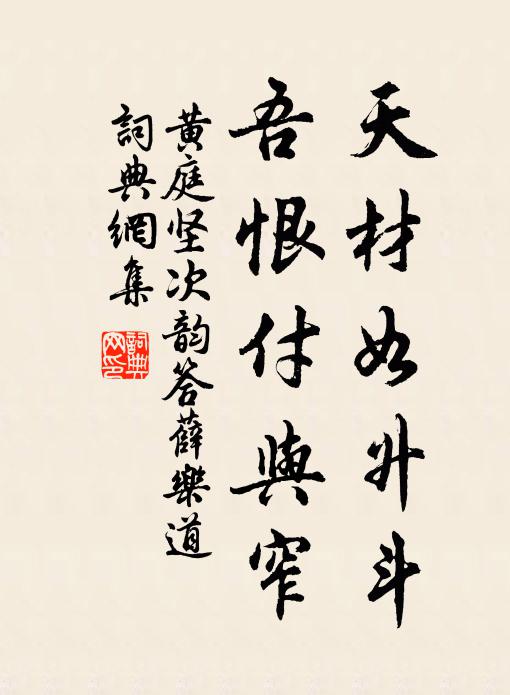 天材如升斗
吾恨付與窄
黄庭坚次韵答薛樂道
詞典網集
詞典网印